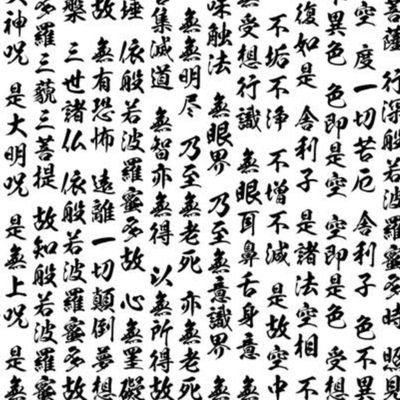 菩薩 行深般若波羅蜜多時 照見
空 度一切苦厄 舍利子 色不異
不異色 色即是空 空即是色 受想
復如是 舍利子 是諸法空相 不
不垢不淨 不增不減 是故空中
無受想行識 無眼耳鼻舌身意 無
味触法 無眼界 乃至無意識界 無
無無明尽 乃至無老死 亦無老死
集滅道 無智亦無得 以無所得故
埵 依般若波羅蜜多故 心無罣礙
故 無有恐怖 遠離一切顛倒夢想
槃 三世諸仏 依般若波羅蜜多故
多羅三藐三菩提 故知般若波羅蜜
大神呪 是大明呪 是無上呪 是無